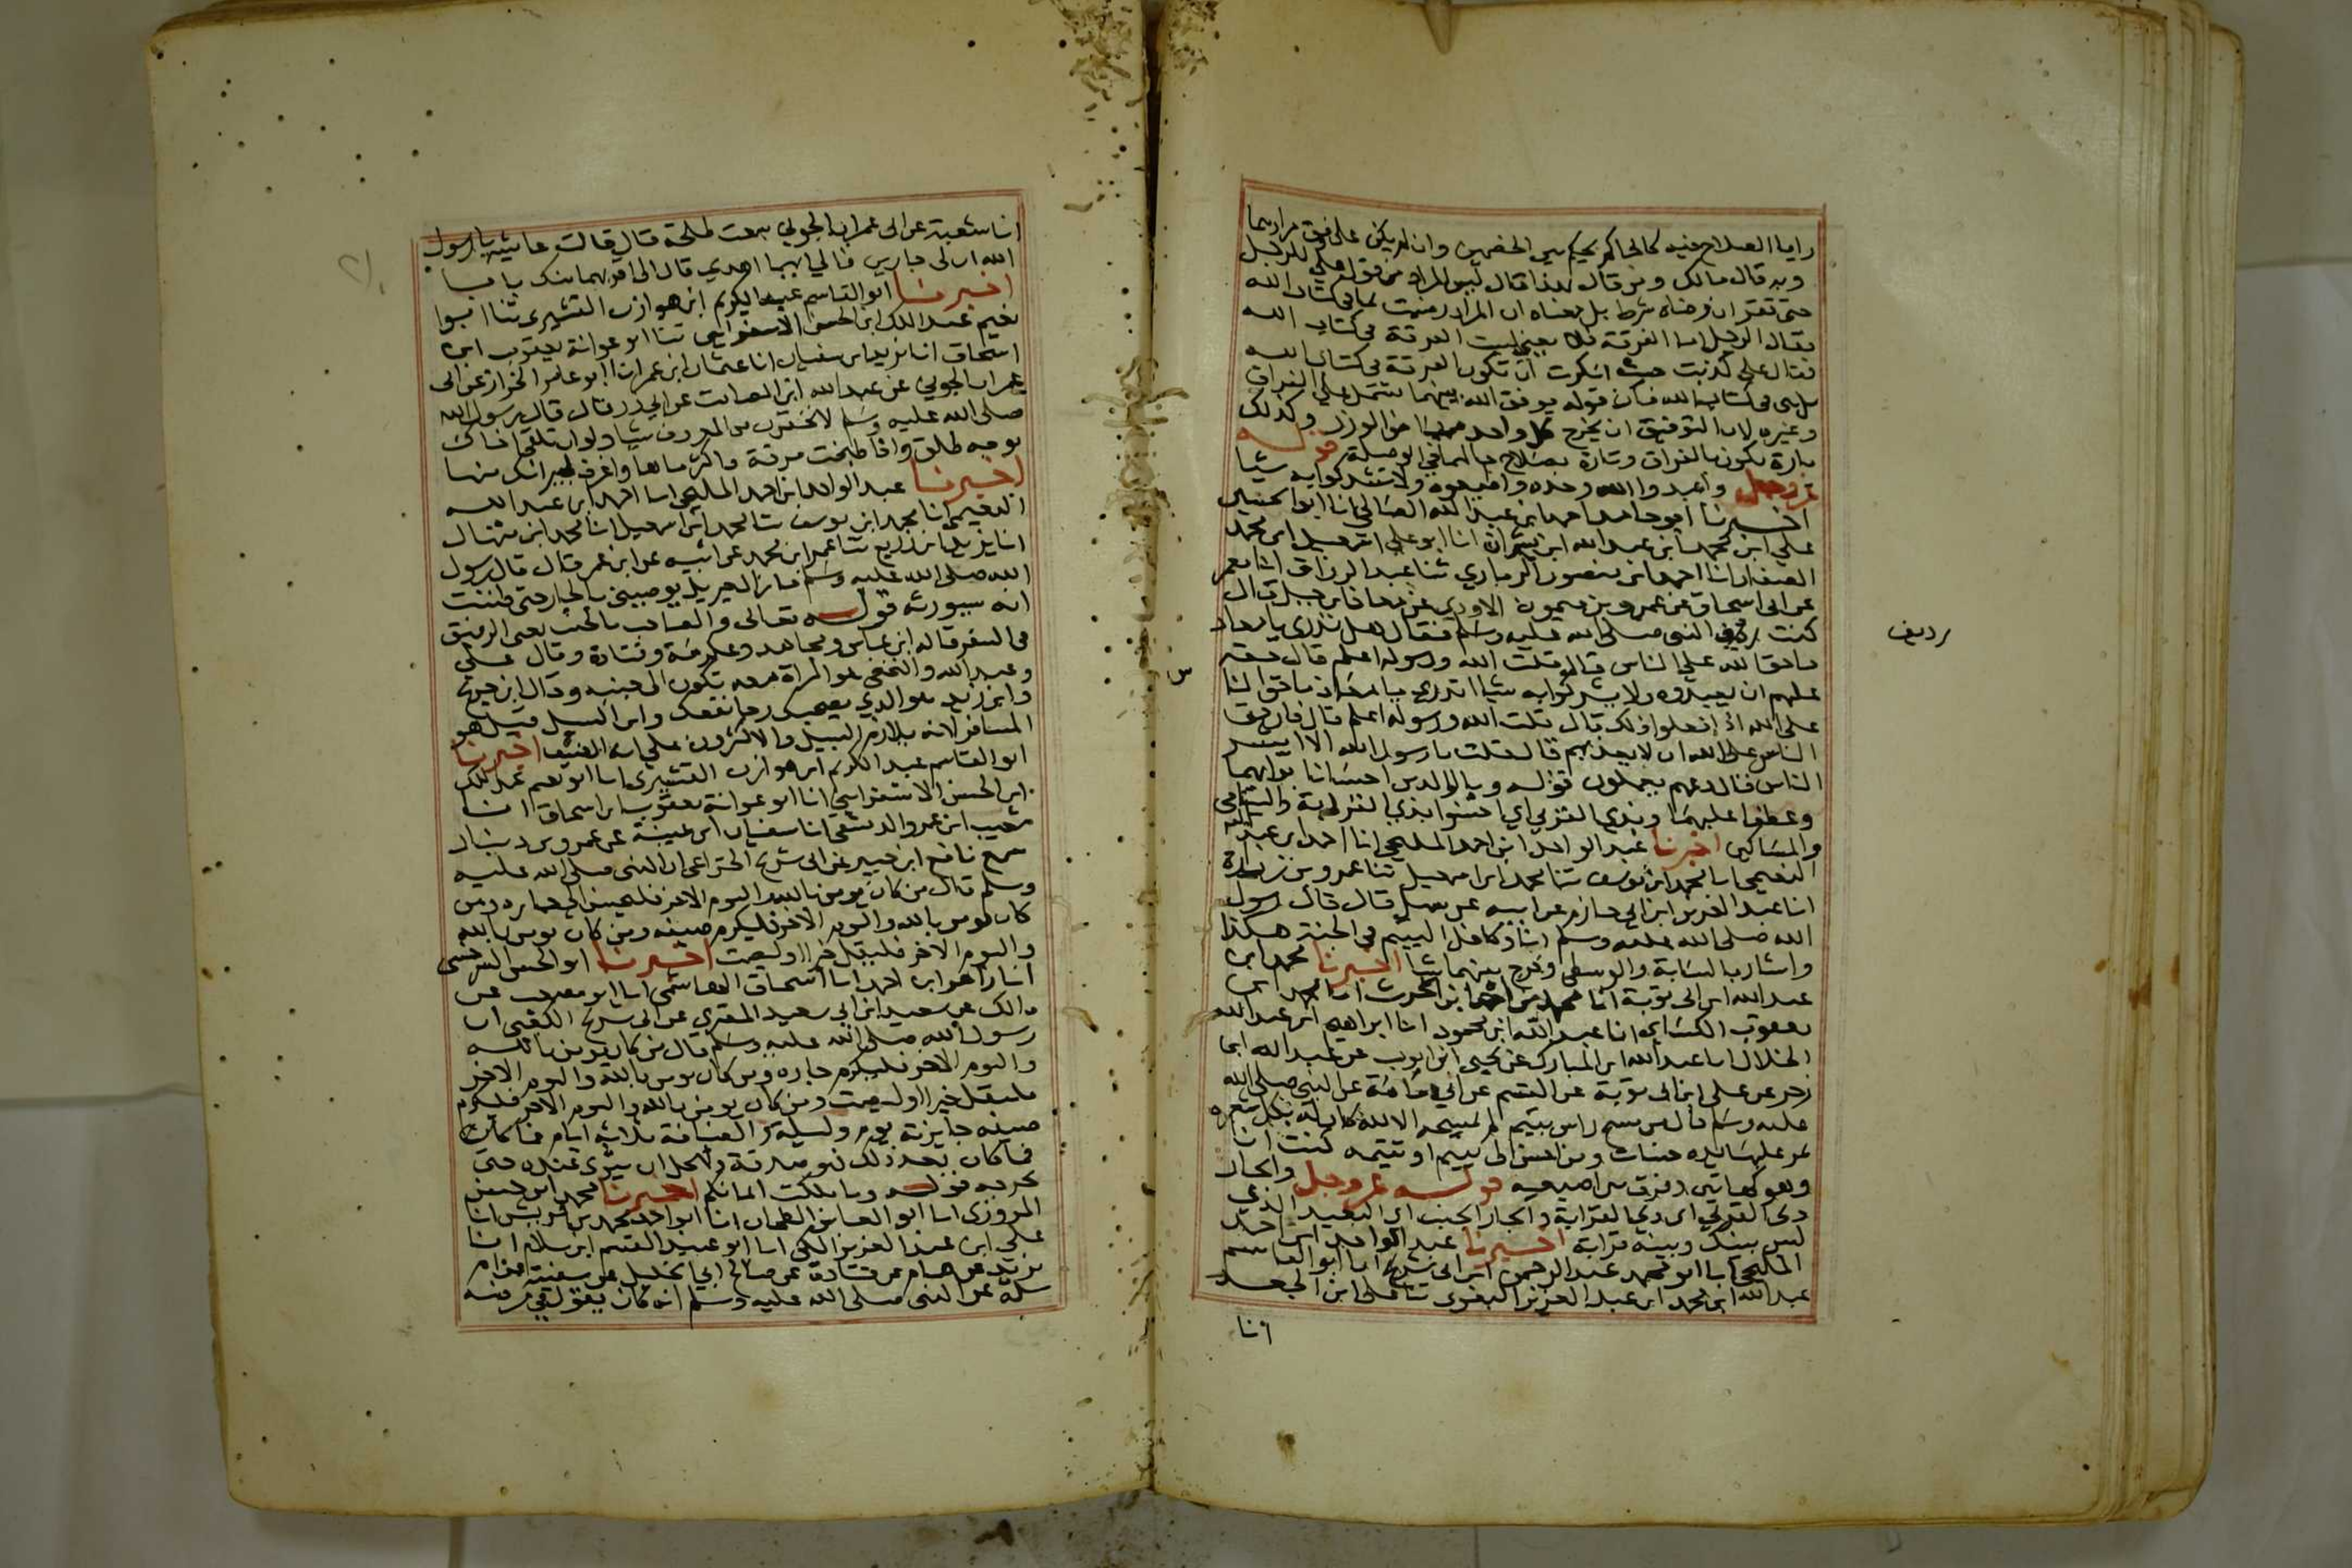 رايا الصلاح فيه كالحاكم يحكم بين الخصمين وان لم يكن على وفق مرادهما
وبه قال مالك ومن قال بهذا قال ليس المراد من قول علي للرجل
حتى تقر ان رضاه شرط بل معناه ان المراة رضيت بما في كتاب الله
فقال الرجل اما الفرقة فلا يعني ليست الفرقة في كتاب الله
فقال علي كذبت حيث انكرت ان تكون الفرقة في كتاب الله
بل هي في كتاب الله فان قوله يوفق الله بينهما يشتمل على الفراق
وغيره لان التوفيق ان يخرج كل واحد من الوزر وكذلك
تارة يكون بالفراق وتارة بصلاح حالهما في الوصلة قوله
عز وجل واعبدوا الله وحده واطيعوه ولا تشركوا به شيا
اخبرنا ابو حامد احمد ابن عبد الله الصالحي انا ابو الحسين
علي ابن محمد ابن عبد الله ابن بشران انا ابو علي اسمعيل ابن محمد
الصفار انا احمد ابن منصور الرمادي ثنا عبد الرزاق انا معمر
عن ابي اسحاق عن عمرو بن ميمون الاودي عن معاذ ابن جبل قال
كنت ردف النبي صلى الله عليه وسلم فقال هل تدري يا معاذ
رديف
ما حق الله على الناس قال قلت الله ورسوله اعلم قال حقه
عليهم ان يعبدوه ولا يشركوا به شيا اتدري يا معاذ ما حق الناس
على الله اذا فعلوا ذلك قال قلت الله ورسوله اعلم قال فان حق
الناس على الله ان لا يعذبهم قال قلت يا رسول الله الا ابشر
الناس قال دعهم يعملون قوله وبالوالدين احسانا برا بهما
وعطفا عليهما وبذي القربى اي احسنوا بذي القرابة واليتامى
والمساكين اخبرنا عبد الواحد ابن احمد المليحي انا احمد ابن عبد الله
النعيمي انا محمد ابن يوسف ثنا محمد ابن اسمعيل ثنا عمرو بن زرارة
انا عبد العزيز ابن ابي حازم عن ابيه عن سهل قال قال رسول
الله صلى الله عليه وسلم انا وكافل اليتيم في الجنة هكذا
واشار بالسبابة والوسطى وفرج بينهما شيا اخبرنا محمد ابن
عبد الله ابن ابي توبة انا محمد بن احمد ابن الحرث انا محمد ابن
يعقوب الكسائي انا عبد الله ابن محمود انا ابراهيم ابن عبد الله
الخلال انا عبد الله ابن المبارك عن يحيى ابن ايوب عن عبيد الله ابن
زحر عن علي ابن يزيد عن القسم عن ابي امامة عن النبي صلى الله
عليه وسلم قال من مسح راس يتيم لم يمسحه الا لله كان له بكل شعرة
تمر عليها يده حسنات ومن احسن الى يتيم او يتيمة كنت انا
وهو كهاتين وفرق بين اصبعيه قوله عز وجل والجار
ذي القربى اي ذي القرابة والجار الجنب اي البعيد الذي
ليس بينك وبينه قرابة اخبرنا عبد الواحد ابن احمد
المليحي انا ابو محمد عبد الرحمن ابن ابي شريح انا ابو القاسم
عبد الله ابن محمد ابن عبد العزيز البغوي ثنا علي ابن الجعد
انا
انا شعبة عن ابي عمران الجوني سمعت طلحة قال قالت عايشة يا رسول
الله ان لي جارين فالى ايهما اهدي قال الى اقربهما منك بابا
اخبرنا ابو القاسم عبد الكريم ابن هوازن القشيري ثنا ابوا
نعيم عبد الملك ابن الحسن الاسفرايني ثنا ابو عوانة يعقوب ابن
اسحاق انا يزيد ابن سفيان انا عثمان ابن عمر انا ابو عامر الخزاز عن ابي
عمران الجوني عن عبد الله ابن الصامت عن ابي ذر قال قال رسول الله
صلى الله عليه وسلم لا تحقرن من المعروف شيا ولو ان تلقى اخاك
بوجه طلق واذا طبخت مرقة فاكثر ماها واغرف لجيرانك منها
اخبرنا عبد الواحد ابن احمد المليحي انا احمد ابن عبد الله
النعيمي انا محمد ابن يوسف ثنا محمد ابن اسمعيل انا محمد ابن منهال
انا يزيد ابن زريع ثنا عمر ابن محمد عن ابيه عن ابن عمر قال قال رسول
الله صلى الله عليه وسلم ما زال جبريل يوصيني بالجار حتى ظننت
انه سيورثه قوله تعالى والصاحب بالجنب يعني الرفيق
في السفر قاله ابن عباس ومجاهد وعكرمة وقتادة وقال علي
وعبد الله والنخعي هو المراة معه تكون الى جنبه وقال ابن جريج
وابن زيد هو الذي يصحبك رجا نفعك وابن السبيل قيل هو
المسافر لانه يلازم السبيل والاكثرون على انه الضيف اخبرنا
ابو القاسم عبد الكريم ابن هوازن القشيري انا ابو نعيم عبد الملك
ابن الحسن الاسفرايني انا ابو عوانة يعقوب ابن اسحاق انا
شعيب ابن عمرو الدمشقي انا سفيان ابن عيينة عن عمرو بن دينار
سمع نافع ابن جبير عن ابي شريح الخزاعي ان النبي صلى الله عليه
وسلم قال من كان يومن بالله واليوم الاخر فليحسن الى جاره ومن
كان يومن بالله واليوم الاخر فليكرم ضيفه ومن كان يومن بالله
واليوم الاخر فليقل خيرا او ليصمت اخبرنا ابو الحسن السرخسي
انا زاهر ابن احمد انا ابو اسحاق الهاشمي انا ابو مصعب عن
مالك عن سعيد ابن ابي سعيد المقبري عن ابي شريح الكعبي ان
رسول الله صلى الله عليه وسلم قال من كان يومن بالله
واليوم الاخر فليكرم جاره ومن كان يومن بالله واليوم الاخر
فليقل خيرا او ليصمت ومن كان يومن بالله واليوم الاخر فليكرم
ضيفه جايزته يوم وليلة والضيافة ثلاثة ايام فما كان
فما كان بعد ذلك فهو صدقة ولا يحل ان يثوي عنده حتى
يحرجه قوله وما ملكت ايمانكم اخبرنا محمد ابن الحسن
المروزي انا ابو العباس الطحان انا ابو احمد محمد بن قريش انا
علي ابن عبد العزيز المكي انا ابو عبيد القسم ابن سلام انا
يزيد عن همام عن قتادة عن صالح ابي الخليل عن سفينة عن ام
سلمة عن النبي صلى الله عليه وسلم انه كان يقول في مرضه